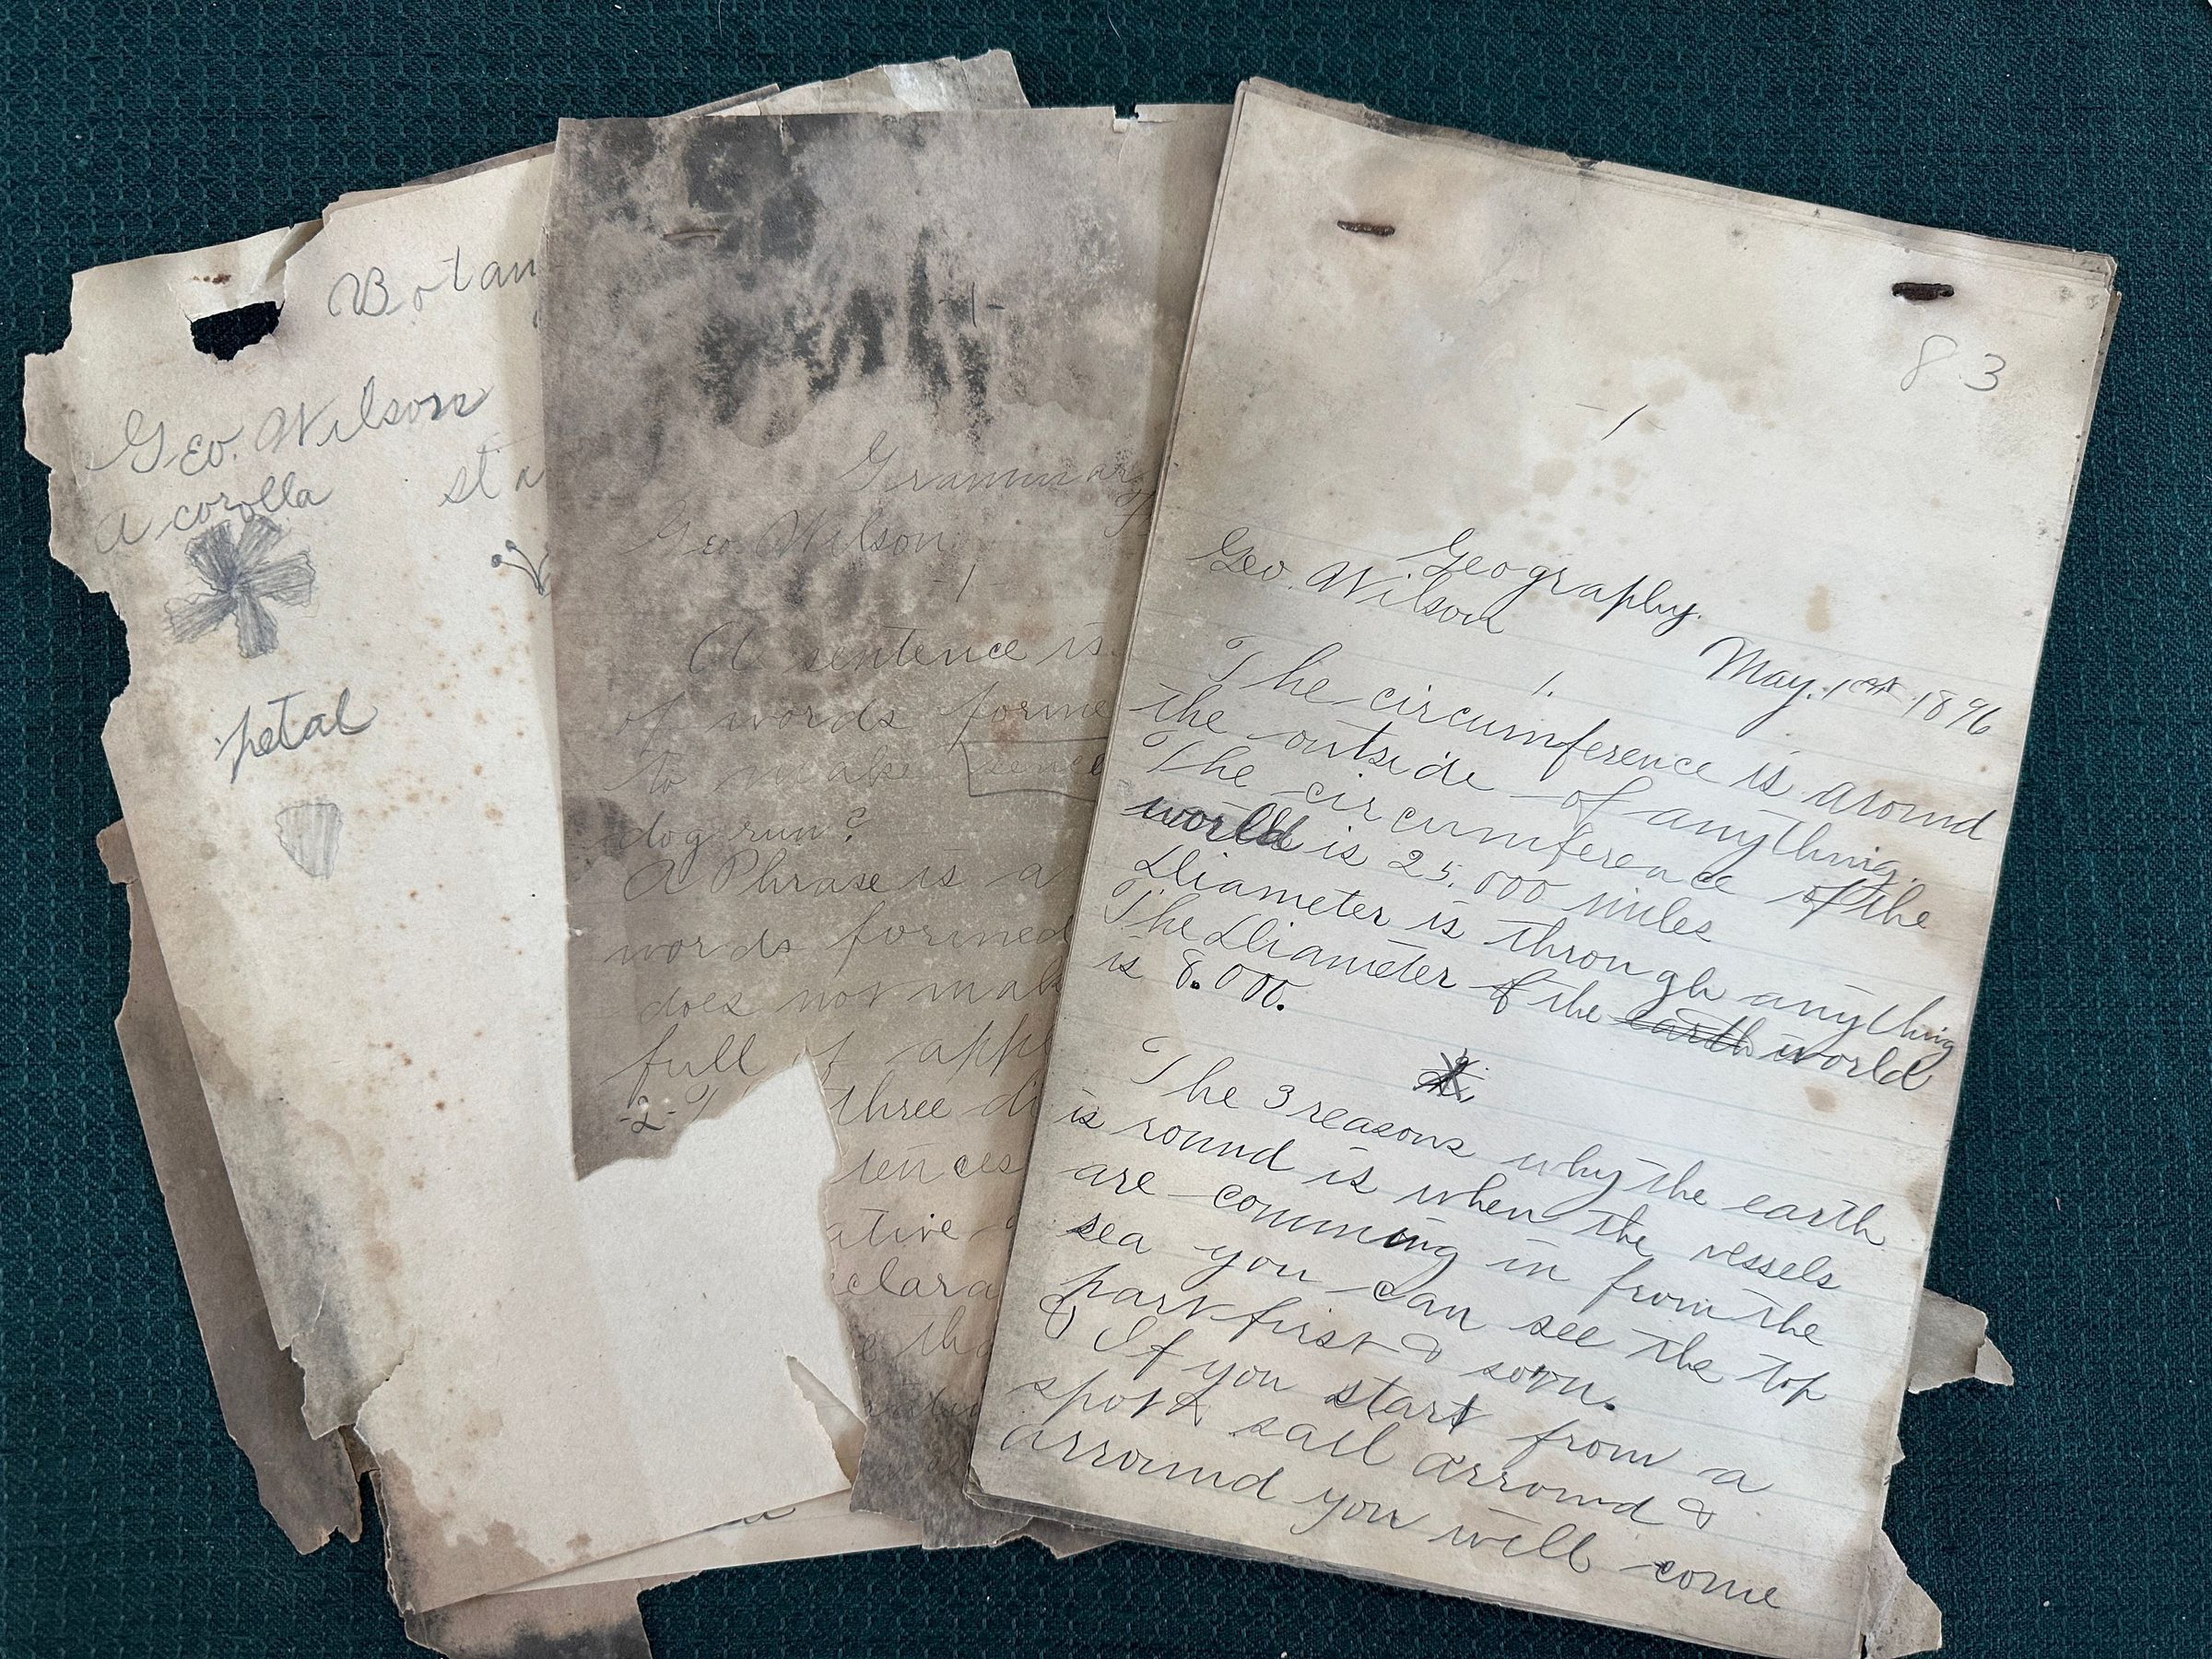 Botan
Geo. Wilson
a corolla
sta
petal
-1-
Grammar
Geo. Wilson
-1-
A sentence is
of words forme
to make sence
dog run?
A Phrase is a
words formed
does not mak
full of appl
-2- three di
tences
ative
clara
e tha
83
-1-
Geography.
Geo. Wilson
May. 1st 1896
1.
The circumference is around
the outside of anything.
The circumference of the
world is 25.000 miles
Diameter is through anything
The Diameter of the earth world
is 8.000.
The 3 reasons why the earth
is round is when the vessels
are comming in from the
sea you can see the top
part first & soon.
& If you start from a
spot & sail arround &
arround you will come